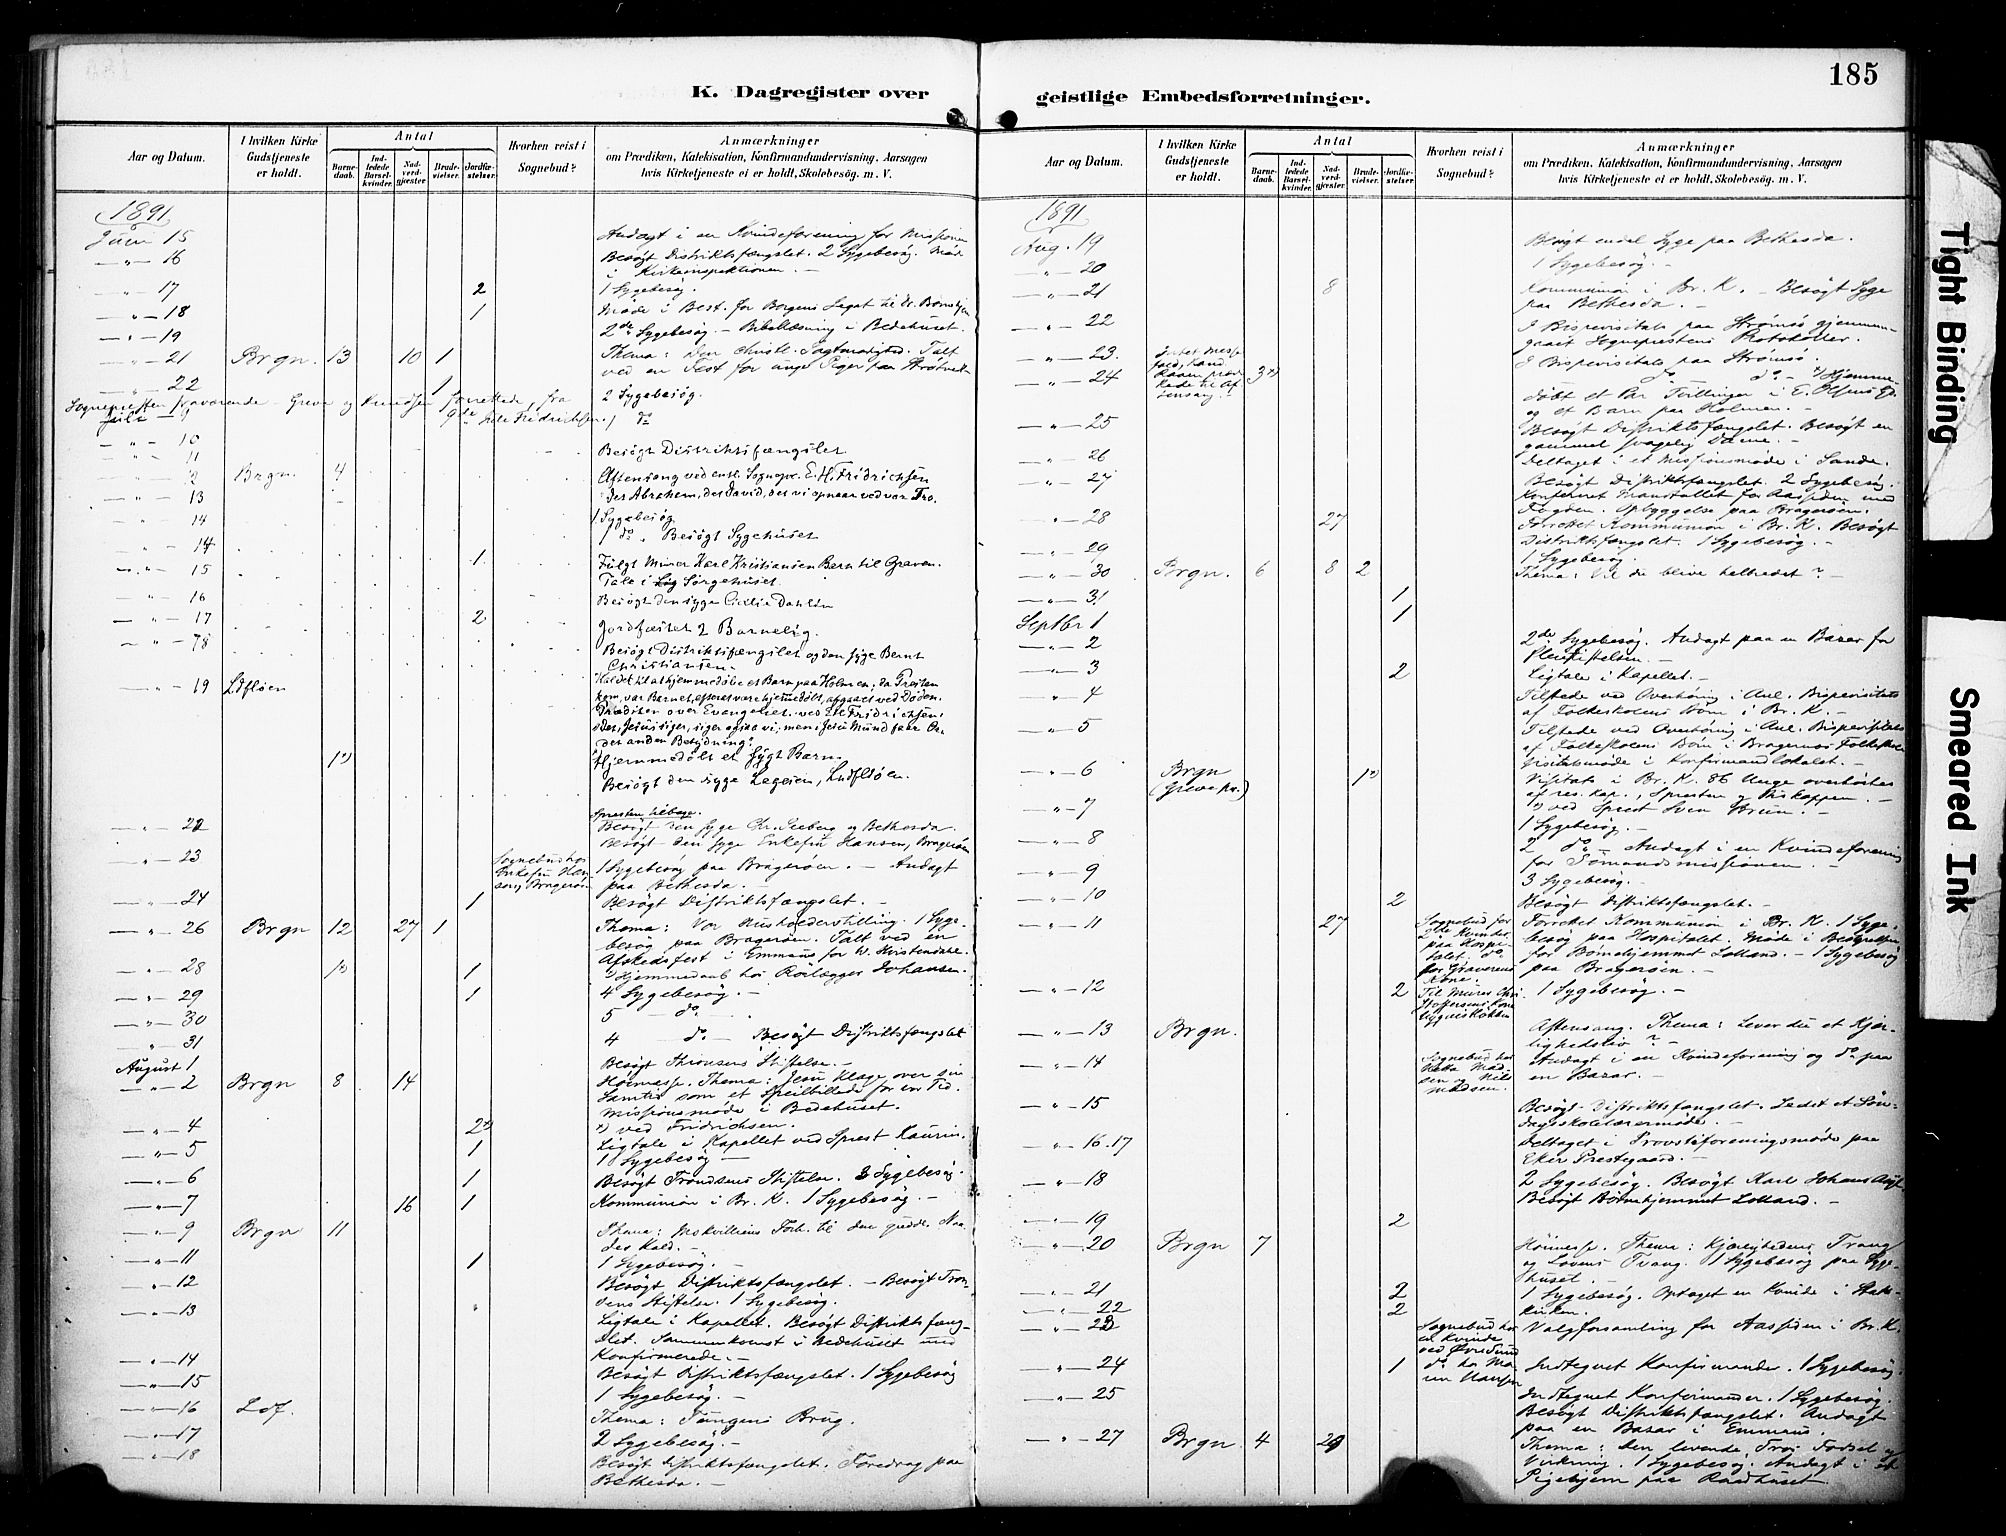 185
K. Dagregister over geistlige Embedsforretninger.
Aar og Datum. I hvilken Kirke Gudstjeneste er holdt. Antal Barnedaab. Indledede Barselkvinder. Nadverdgjæster Brudevielser. Jordfæstelser. Hvorhen reist i Sognebud? Anmærkninger om Prædiken, Katekisation, Konfirmandundervisning, Aarsagen hvis Kirketjeneste ei er holdt, Skolebesøg. m. V.
1891
Juni 15 Andagt i en Kvindeforening for Missionen
— " — 16 Besøgt Distriktsfængslet. 2 Sygebesøg. Møde
i Kirkeinspektionen. —
— " — 17 2 1 Sygebesøg.
— " — 18 1 Møde i Best. for Borgens Legat til Br. Børnehjem
— " — 19 2de Sygebesøg. — Bibellæsning i Bedehuset.
— " — 21 Brgn. 13 10 1 Thema: Den Christl. Sagtmodighed. Talt
ved en Fest for unge Piger paa Strøtvedt
— " — 22 1 2 Sygebesøg.
Sognepresten fraværende — Greve og Knudsen forrettede, fra
9de Juli Fridrichsen.
Juli — 9 1 do
— " — 10
— " — 11 Besøgt Distriktsfængslet
— " — 12 Brgn. 4 Aftensang ved emt. Sognepr. E. H. Fridrichsen
— " — 13 Des Abrahem, des David, des vi opnaar ved vor Tro.
— " — 14 1 Sygebesøg
1 do. Besøgt Sygehuset
— " — 14 1 Fulgt Murer Karl Kristiansen Barn til Graven.
— " — 15 Tale i Sørgehuset.
— " — 16 Besøgt den syge Cicilie Dahlen
— " — 17 2 Jordfæstet 2 Barnelig.
— " — 18 Besøgt Distriktsfængslet og den syge Bernt
Christiansen.
— " — 19 Ldfløen
Prædiken over Evangeliet ved E. H. Fridrichsen:
det anden Betydning?
1*) Hjemmedøbt et sygt Barn.
Besøgt den syge Legeien, Lndfløen.
Spresten tilbage.
— " — 22 Besøgt den syge Chr. Seeberg og Bethesda.
Besøgt den syge Enkefru Hansen, Bragerøen
— " — 23 Sognebud hos Enkefru Hansen, Bragerøen 1 Sygebesøg paa Bragerøen. — Andagt
paa Bethesda. —
— " — 24 1 Besøgt Distriktsfængslet. —
— " — 26 Brgn 12 27 1 Thema: Vor Husholderstilling. 1 Sygebesøg
paa Bragerøen. Talt ved en
Afskedsfest i Emmaus for W. Kristendahl.
— " — 28 1*) 1 *) Hjemmedaab hos Rørlægger Johansen.
— " — 29 1 4 Sygebesøg. —
— " — 30 5 — do. —
— " — 31 4 do. — Besøgt Distriktsfængslet
August 1 Besøgt Thronsens Stiftelse. —
— " — 2 Brgn 8 14 Høimesse. Thema: Jesu Klage over sin
Samtid som et Speilbillede for vor Tid.
Missionsmøde i Bedehuset.
— " — 4 2*) *) ved Fridrichsen.
— " — 5 1 Ligtale i Kapellet ved Sprest Kaurin.
1 Sygebesøg —
— " — 6 1 Besøgt Trondsens Stiftelse. 3 Sygebesøg.
— " — 7 16 1 Kommunion i Br. K. 1 Sygebesøg. —
— " — 9 Brgn 11
— " — 11 1 1 Sygebesøg. —
— " — 12 Besøgt Distriktsfængslet. — Besøgt Trondsens
Stiftelse. 1 Sygebesøg.
— " — 13 " Ligtale i Kapellet. Besøgt Distriktsfængslet.
Sammenkomst i Bedehuset med
Konfirmerede. —
— " — 14 Besøgt Distriktsfængslet. 1 Sygebesøg
— " — 15 1 Sygebesøg. —
— " — 16 Ldf. Thema: Tungens Brug.
— " — 17 2 Sygebesøg. —
— " — 18 Besøgt Distriktsfængslet. Foredrag paa
Bethesda. —
Aar og Datum. I hvilken Kirke Gudstjeneste er holdt. Antal Barnedaab. Indledede Barselkvinder. Nadverdgjæster Brudevielser. Jordfæstelser. Hvorhen reist i Sognebud? Anmærkninger om Prædiken, Katekisation, Konfirmandundervisning, Aarsagen hvis Kirketjeneste ei er holdt, Skolebesøg. m. V.
1891
Aug. 19 Besøgt endel Syge paa Bethesda.
— " — 20 1 Sygebesøg. —
— " — 21 8 Kommunion i Br. K. — Besøgt Syge
paa Bethesda. —
— " — 22 I Bispevisitats paa Strømsø gjennemgaaet
Sogneprestens Protokoller.
— " — 23. I Bispevisitats paa Strømsø.
— " — 24 3*) do do — *) Hjemmedøbt
et Par Tvillinger i E. Olsens Gd.
og et Barn paa Holmen. —
— " — 25 Besøgt Distriktsfængslet. Besøgt en
gammel svagelig Dame. —
— " — 26 Deltaget i et Missionsmøde i Sande.
— " — 27 Besøgt Distriktsfængslet. 2 Sygebesøg.
Konfereret Manstallet for Aassiden med
Fogden. Opbyggelse paa Bragerøen.
— " — 28 27 Forrettet Kommunion i Br. K. Besøgt
Distriktsfængslet. 1 Sygebesøg. —
— " — 29 1 Sygebesøg. —
— " — 30 Brgn. 6 8 2 Thema: Vil du blive helbredet? —
— " — 31 1
Septbr 1 1
— " — 2 2de Sygebesøg. Andagt paa en Bazar for
Pleiestiftelsen. —
— " — 3 2 Ligtale i Kapellet. —
— " — 4 Tilstede ved Overhøring i Anl. Bispevisitats
af Folkeskolens Børn i Br. K. —
— " — 5 Tilstede ved Overhøring i Anl. Bispevisitats
af Folkeskolens Børn i Bragernes Folkeskole
Visitatsmøde i Konfirmandlokalet. —
— " — 6 Brgn (Greve pr.) 1*) Visitats i Br. K. 86 Unge overhørtes
af res. kap., Spresten og Biskoppen. —
*) ved Sprest Sven Brun. —
— " — 7 1 Sygebesøg. —
— " — 8 2 do — Andagt i en Kvindeforening
for Sømandsmissionen. —
— " — 9 3 Sygebesøg. —
— " — 10 2 Besøgt Distriktsfængslet. —
— " — 11 27 Sognebud for 2de Kvinder paa Hospitalet. do for Graverens Kone. Forrettet Kommunion i Br. K. 1 Sygebesøg
paa Hospitalet. Møde i Bestyrelsen
for Børnehjemmet Lolland. — 1 Sygebesøg
paa Bragerøen. —
— " — 12 2 1 Sygebesøg. —
— " — 13 Brgn. Aftensang. Thema: Lever du et Kjærlighedsliv? —
— " — 14 Andagt i en Kvindeforening og do paa
en Bazar. —
— " — 15 Besøgt Distriktsfængslet. Ledet et Søndagsskolelærermøde.
— " — 16.17 Deltaget i Provstiforeningsmøde paa
Eker Prestegaard. —
— " — 18 2 Sygebesøg. Besøgt Karl Johans Asyl
Besøgt Børnehjemmet Lolland. —
— " — 19 2
— " — 20 Brgn 7 Høimesse. Thema: Kjærlighedens Trang
og Lovens Tvang. 1 Sygebesøg paa Sygehuset. —
— " — 21 2 1 Sygebesøg. Optaget en Kvinde i Statskirken. —
— " — 22 2
— " — 23 Sognebud hos en Kvinde ved Øvre Sund Valgforsamling for Aassiden i Br. K.
— " — 24 1 Indtegnet Konfirmander. 1 Sygebesøg.
— " — 25 Indtegnet Konfirmander. 1 Sygebesøg.
Besøgt Distriktsfængslet. Andagt
paa en Bazar i Emmaus.
— " — 27 Brgn 4 29 Thema: Den levende Tros Fødsel og
Virkning. 1 Sygebesøg. Andagt i et
Pigehjem paa Raadhuset.
Tight Binding
Smeared Ink